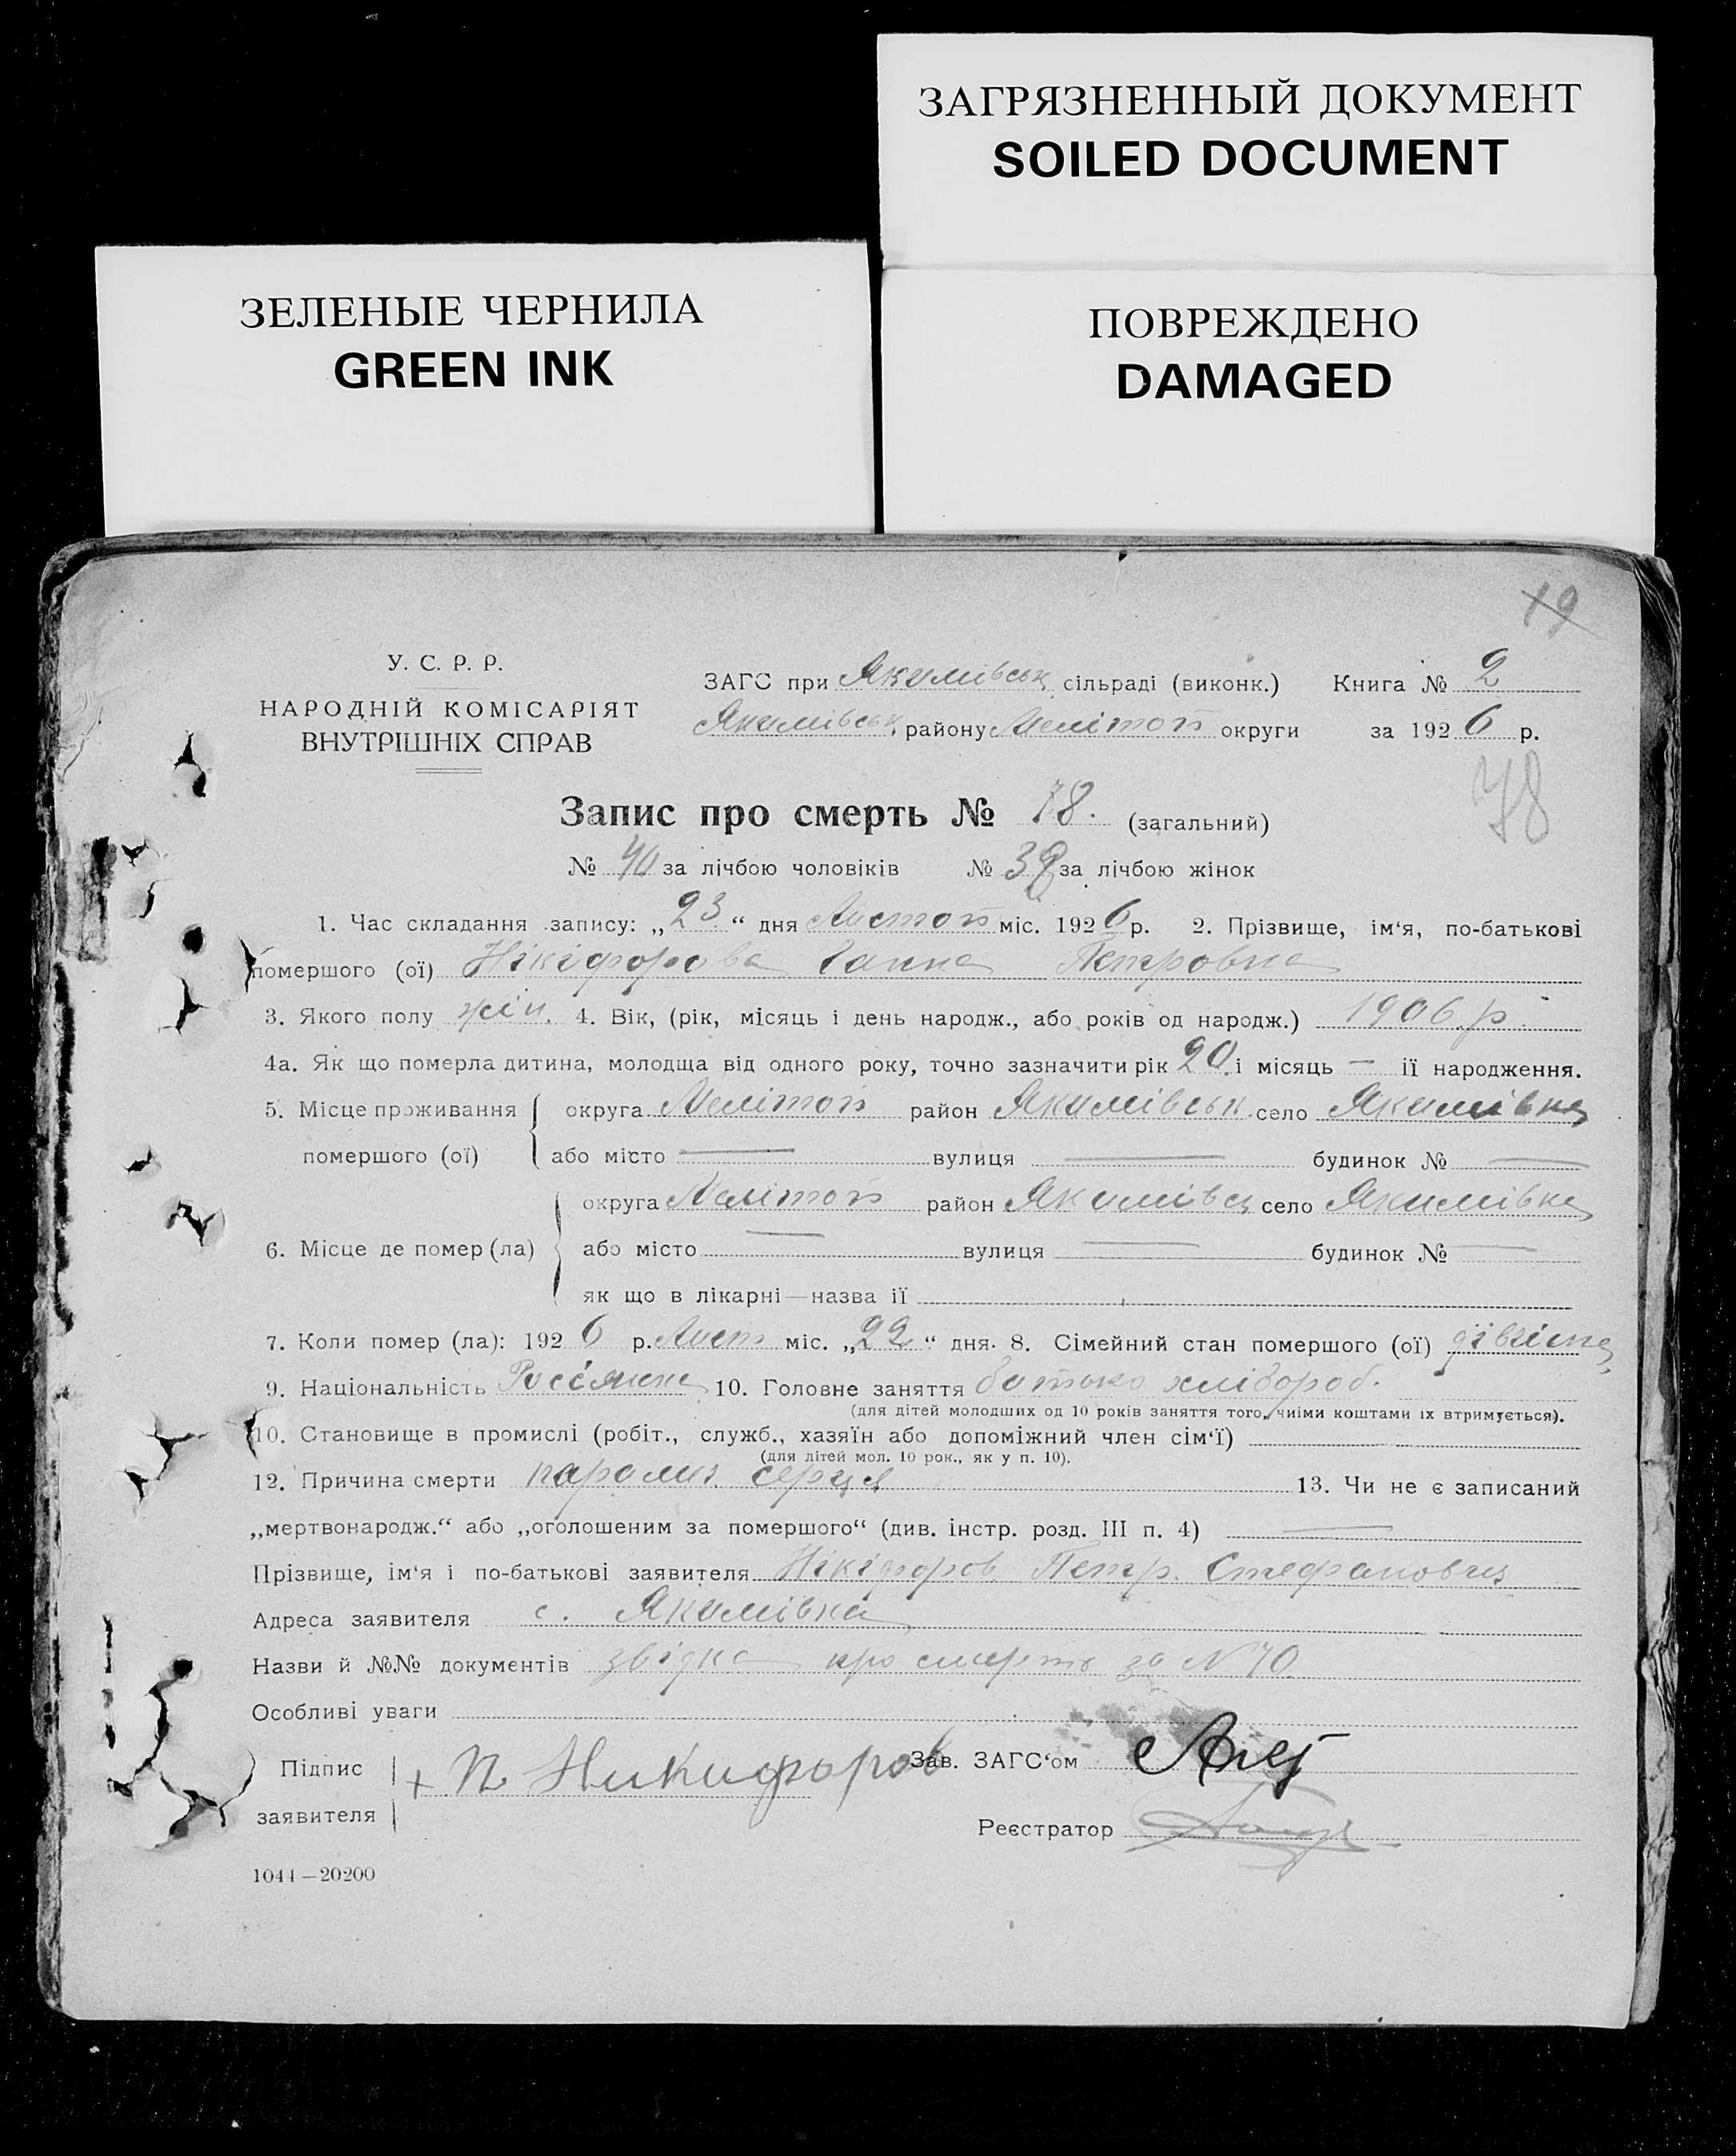 ЗАГРЯЗНЕННЫЙ ДОКУМЕНТ
SOILED DOCUMENT
ЗЕЛЕНЫЕ ЧЕРНИЛА
GREEN INK
ПОВРЕЖДЕНО
DAMAGED
19
У. С. Р. Р.
НАРОДНІЙ КОМІСАРІЯТ
ВНУТРІШНІХ СПРАВ
ЗАГС при Якимівськ сільраді (виконк.) Книга № 2
Якимівськ. району Мелітоп округи за 1926 р.
78
Запис про смерть № 78. (загальний)
№ 40 за лічбою чоловіків № 38 за лічбою жінок
1. Час складання запису: „23“ дня Листоп міс. 1926 р. 2. Прізвище, ім‘я, по-батькові
помершого (ої) Нікіфорова Ганна Петровна
3. Якого полу жін. 4. Вік, (рік, місяць і день народж., або років од народж.) 1906 р.
4а. Як що померла дитина, молодща від одного року, точно зазначити рік 20 і місяць — її народження.
5. Місце проживання помершого (ої) округа Мелітоп район Якимівськ село Якимівка
або місто — вулиця — будинок № —
6. Місце де помер (ла) округа Мелітоп район Якимівс село Якимівка
або місто — вулиця — будинок № —
як що в лікарні—назва її
7. Коли помер (ла): 1926 р. Лист міс. „22“ дня. 8. Сімейний стан помершого (ої) дівчіна
9. Національність Россіянка 10. Головне заняття батько хлібороб.
(для дітей молодших од 10 років заняття того, чиїми коштами їх втримується).
10. Становище в промислі (робіт., служб., хазяїн або допоміжний член сім‘ї)
(для дітей мол. 10 рок., як у п. 10).
12. Причина смерти паралич серця 13. Чи не є записаний
„мертвонародж.“ або „оголошеним за помершого“ (див. інстр. розд. III п. 4) —
Прізвище, ім‘я і по-батькові заявителя Нікіфоров Петр. Стефанович
Адреса заявителя с. Якимівка
Назви й №№ документів звідка про смерть за N 70
Особливі уваги
Підпис заявителя + П Никифоров Зав. ЗАГС‘ом
Реєстратор
1044—20200